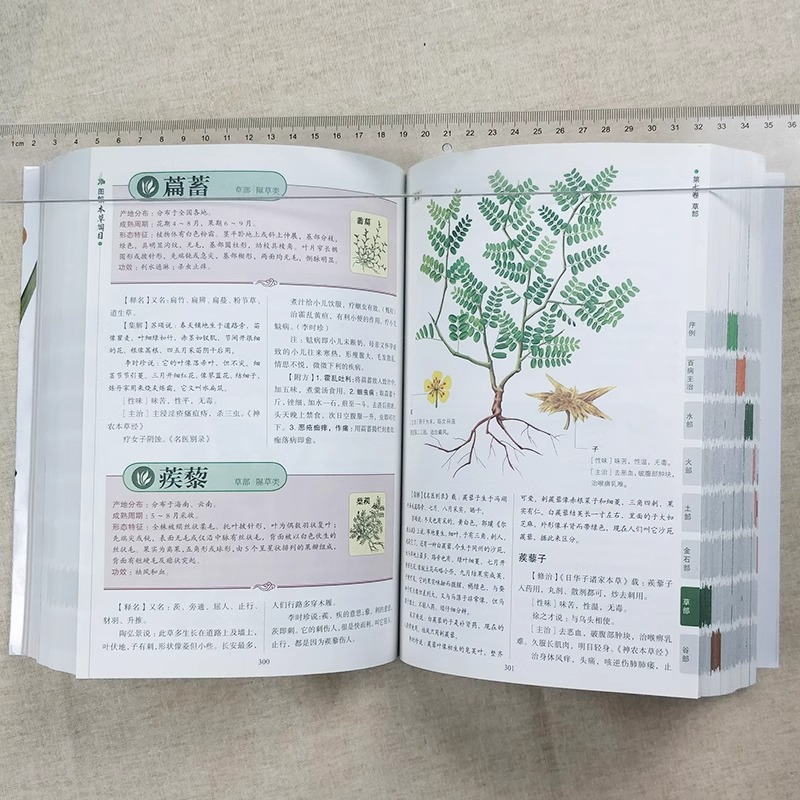 1cm 2 3 4 5 6 7 8 9 10 11 12 13 14 15 16 17 18 19 20 21 22 23 24 25 26 27 28 29 30 31 32 33 34 35 36
图解本草纲目
萹蓄
草部 隰草类
产地分布：分布于全国各地。
成熟周期：花期4～8月，果期6～9月。
形态特征：植物体有白色粉霜。茎平卧地上或斜上伸展，基部分枝，
绿色，具明显沟纹，无毛，基部圆柱形，幼枝具棱角。叶片窄长椭
圆形或披针形，先端钝或急尖，基部楔形，两面均无毛，侧脉明显。
功效：利水通淋；杀虫止痒。
萹蓄
【释名】又名：扁竹、扁辨、扁蔓、粉节草、
道生草。
【集解】苏颂说：春天铺地生于道路旁，苗
像瞿麦，叶细绿如竹，赤茎如钗股，节间开很细
的花，根像蒿根，四五月采苗阴干后用。
李时珍说：它的叶像落帚叶，但不尖，细
茎节节引蔓。三月开细红花，像蓼蓝花，结细子，
炼丹家用来烧炙炼霜。它又叫水扁筑。
［性味］味苦，性平，无毒。
［主治］主浸淫疥瘙疽痔，杀三虫。《神
农本草经》
疗女子阴蚀。《名医别录》
煮汁给小儿饮服，疗蛔虫有效。（甄权）
治霍乱黄疸，有利小便的作用。疗小儿
魃病。（李时珍）
注：魃病即小儿未断奶，母亲又怀孕导
致的小儿往来寒热，形瘦腹大，毛发散乱，
情思不悦，微微下利的疾病。
【附方】1. 霍乱吐利：将萹蓄放入豉汁中，
加五味，煮羹汤食用。2. 蛔虫病：取萹蓄十
斤，锉细，加水一石，煎至一斗，去渣后煎浓，
头天晚上禁食，次日空腹服一升，虫即可打
下。3. 恶疮痂痒，作痛：用萹蓄捣烂封患处，
痂落病即愈。
蒺藜
草部 隰草类
产地分布：分布于海南、云南。
成熟周期：5～8月采收。
形态特征：全株被绢丝状柔毛。托叶披针形，叶为偶数羽状复叶；
先端尖或钝，表面无毛或仅沿中脉有丝状毛，背面被以白色伏生的
丝状毛。果实为离果，五角形或球形，由5个呈星状排列的果瓣组成，
背面有短硬毛及瘤状突起。
功效：祛风和血。
蒺藜
【释名】又名：茨、旁通、屈人、止行、
豺羽、升推。
陶弘景说：此草多生长在道路上及墙上，
叶伏地，子有刺，形状像菱但小些。长安最多，
人们行路多穿木履。
李时珍说：蒺，疾的意思；藜，利的意思；
茨即刺。它的刺伤人，很是快而利。叫它屈人、
止行，都是因为蒺藜伤人。
300
第七卷 草部
子
［性味］味苦，性温，无毒。
［主治］去恶血，破癥瘕部肿块，
治喉痹乳难。
【集解】《名医别录》载：蒺藜子生于冯翊
可爱，刺蒺藜像赤根菜子和细菱，三角四刺，果
实有仁。白蒺藜结荚长一寸左右，里面的子大如
芝麻，外形像羊肾而带绿色，现在人们叫它沙苑
蒺藜，据此来区分。
蒺藜子
【修治】《日华子诸家本草》载：蒺藜子
入药用，丸剂、散剂都可，炒去刺用。
［性味］味苦，性温，无毒。
徐之才说：与乌头相使。
［主治］去恶血，破腹部肿块，治喉痹乳
难。久服长肌肉，明目轻身。《神农本草经》
治身体风痒，头痛，咳逆伤肺肺痿，止
301
序例
百病主治
水部
火部
土部
金石部
草部
谷部